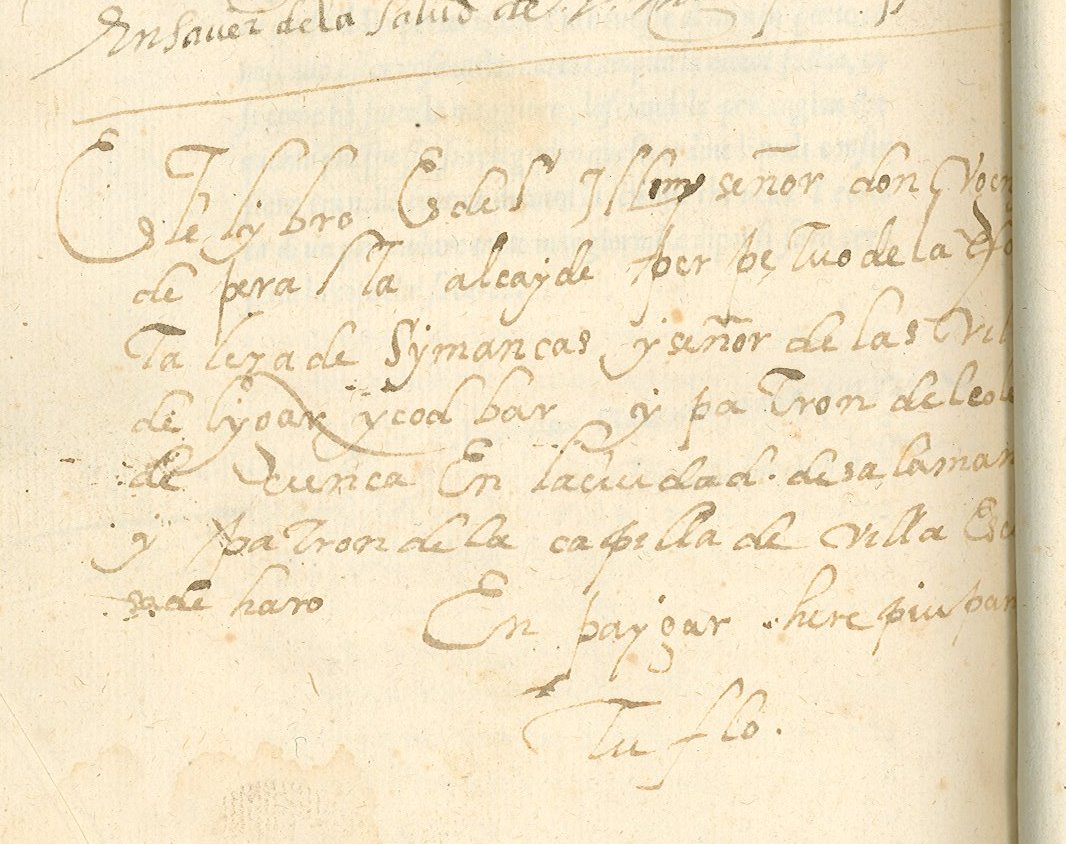 Ensaver de la salud de
Este lybro Es del Illmo señor don
de peralta alcayde perpetuo de la
taleza de Symancas y señor de las Vil
de lyoar ycodbar y patron del cole
de cuenca En la ciudad de salaman
y patron de la capilla de villa Escu
sa de haro En
Tu flo.